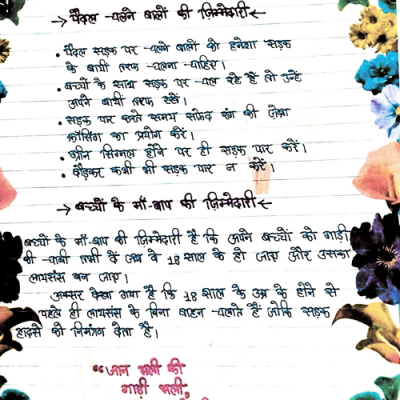 → पैदल चलने वालों की ज़िम्मेदारी ←
• पैदल सड़क पर चलने वालों को हमेशा सड़क
के बायीं तरफ चलना चाहिए।
• बच्चों के साथ सड़क पर चल रहे हैं तो उन्हें
अपने बायीं तरफ रखें।
• सड़क पार करते समय सफेद रंग की जेब्रा
क्रॉसिंग का प्रयोग करें।
• ग्रीन सिग्नल होने पर ही सड़क पार करें।
• दौड़कर कभी भी सड़क पार न करें।
→ बच्चों के माँ-बाप की ज़िम्मेदारी ←
बच्चों के माँ-बाप की ज़िम्मेदारी है कि अपने बच्चों को गाड़ी
की चाबी तभी दें जब वे 18 साल के हो जाए और उसका
लायसेंस बन जाए।
अक्सर देखा गया है कि 18 साल के उम्र के होने से
पहले ही लायसेंस के बिना वाहन चलाते हैं जोकि सड़क
हादसे को निमंत्रण देता है।
"जान भली की
गाड़ी भली,